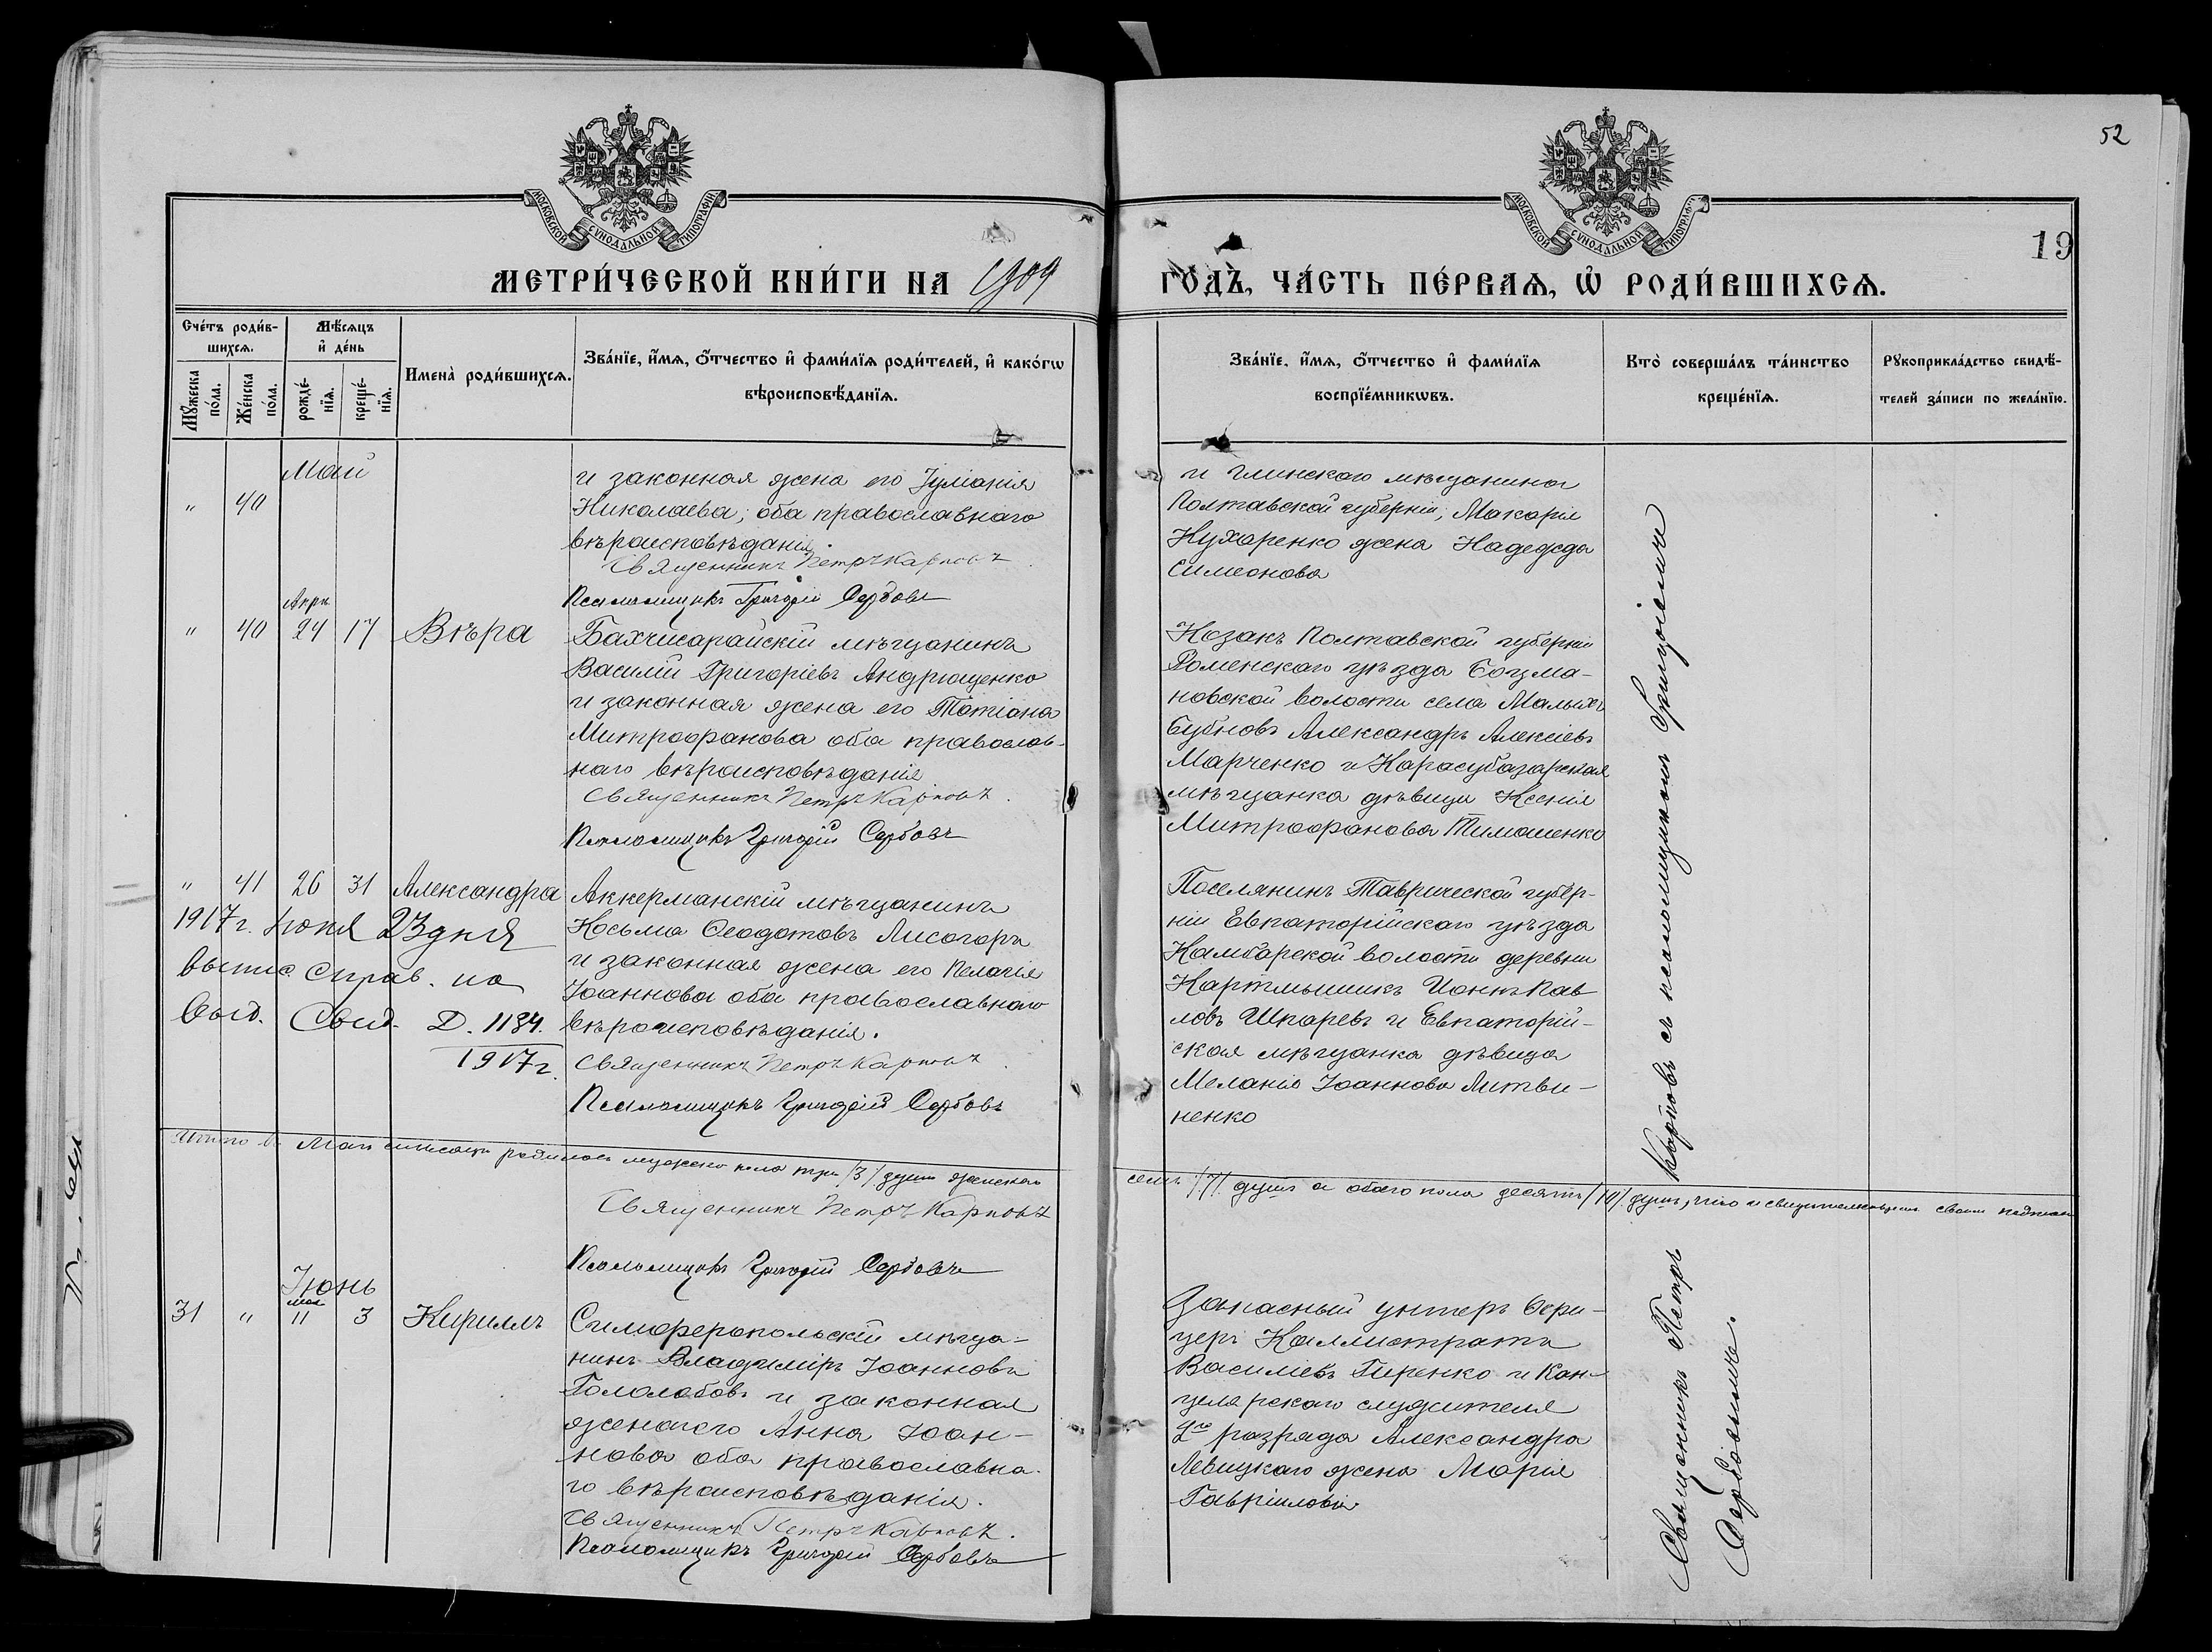 52
МОСКОВСКОЙ СУНОДАЛЬНОЙ ТИПОГРАФІИ.
МОСКОВСКОЙ СУНОДАЛЬНОЙ ТИПОГРАФІИ.
19
МЕТРИ́ЧЕСКОЙ КНИ́ГИ НА 1909
ГО́ДЪ, ЧА́СТЬ ПЕ́РВАѦ, Ѡ҆ РОДИ́ВШИХСѦ.
Сче́тъ роди́в-
шихсѧ.
Мꙋ́жеска по́ла.
Же́нска по́ла.
Мѣ́сѧцъ
и҆ де́нь
рожде́-
нїѧ.
креще́-
нїѧ.
Имена̀ роди́вшихсѧ.
Зва́нїе, и҆́мѧ, ѻ҆́тчество и҆ фами́лїѧ роди́телей, и҆ како́гѡ
вѣроисповѣ́данїѧ.
Зва́нїе, и҆́мѧ, ѻ҆́тчество и҆ фами́лїѧ
воспрїе́мникѡвъ.
Кто̀ соверша́лъ та́инство
креще́нїѧ.
Рꙋкоприкла́дство свидѣ́-
телей за́писи по жела́нїю.
Май
" 40
и законная жена его Іуліанія
Николаева; оба православнаго
вѣроисповѣданія.
Священникъ Петръ Карповъ
Псаломщикъ Григорій Сербовъ
и глинскаго мѣщанина
Полтавской губерніи, Макарія
Кухаренко жена Надежда
Симеонова
Апрѣ.
" 40 24 17 Вѣра
Бахчисарайскій мѣщанинъ
Василій Григоріевъ Андрющенко
и законная жена его Татіана
Митрофанова оба православ-
наго вѣроисповѣданія
Священникъ Петръ Карповъ.
Псаломщикъ Григорій Сербовъ
Козакъ Полтавской губерніи
Роменскаго уѣзда
новской волости села Малыхъ
Бубновъ Александръ Алексіевъ
Марченко и Карасубазарская
мѣщанка дѣвица Ксенія
Митрофанова Тимошенко
" 41 26 31 Александра
1917г. Іюня 23 дня
выпис. справ. на
Выд. Свид. Д. 1184.
1917г.
Аккерманскій мѣщанинъ
Косьма Ѳеодотовъ Лисогоръ
и законная жена его Пелагія
Іоаннова оба православнаго
вѣроисповѣданія.
Священникъ Петръ Карповъ.
Псаломщикъ Григорій Сербовъ
Поселянинъ Таврической губер-
ніи Евпаторійскаго уѣзда
Камбарской волости деревни
Картмышикъ Пав
ловъ Шкаревъ и Евпаторій-
ская мѣщанка дѣвица
Меланія Іоаннова Литви-
ненко
Итого въ Маѣ мѣсяцѣ родилось мужеска пола три /3/ души женскаго
семь /7/ душъ а обоего пола десять /10/ душъ, что и свидѣтельствуемъ своими подписями
Священникъ Петръ Карповъ
Псаломщикъ Григорій Сербовъ
Іюнь
мая
31 " 11 3 Кириллъ
Симферопольскій мѣща-
нинъ Владиміръ Іоанновъ
Гололобовъ и законная
жена его Анна Іоан-
нова оба православна-
го вѣроисповѣданія.
Священникъ Петръ Карповъ.
Псаломщикъ Григорій Сербовъ
Запасный унтеръ Офи-
церъ Каллистратъ
Василіевъ Гиренко и Кан-
целярскаго служителя
разряда Александра
Левицкаго жена Марія
Гавріилова
Священникъ Петръ Карповъ съ псаломщикомъ Григоріемъ
Сербовымъ.